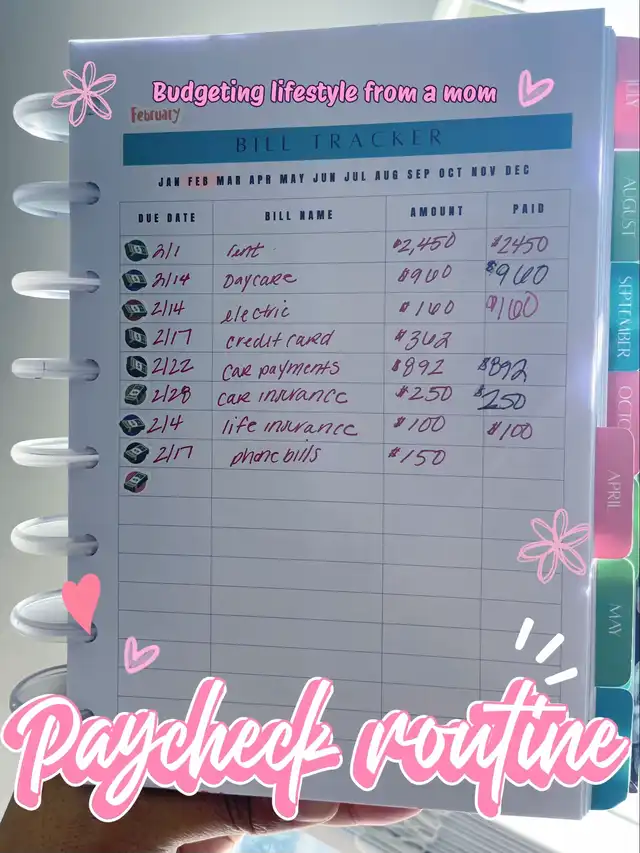 Budgeting lifestyle from a mom
February
BILL TRACKER
JAN FEB MAR APR MAY JUN JUL AUG SEP OCT NOV DEC
DUE DATE BILL NAME AMOUNT PAID
2/1 rent $2,450 $2450
2/14 Daycare $960 $960
2/14 electric $160 $160
2/17 credit card $362
2/22 car payments $892 $892
2/28 car insurance $250 $250
2/4 life insurance $100 $100
2/17 phone bills $150
JULY
AUGUST
SEPTEMBER
OCTO
APRIL
MAY
Paycheck routine